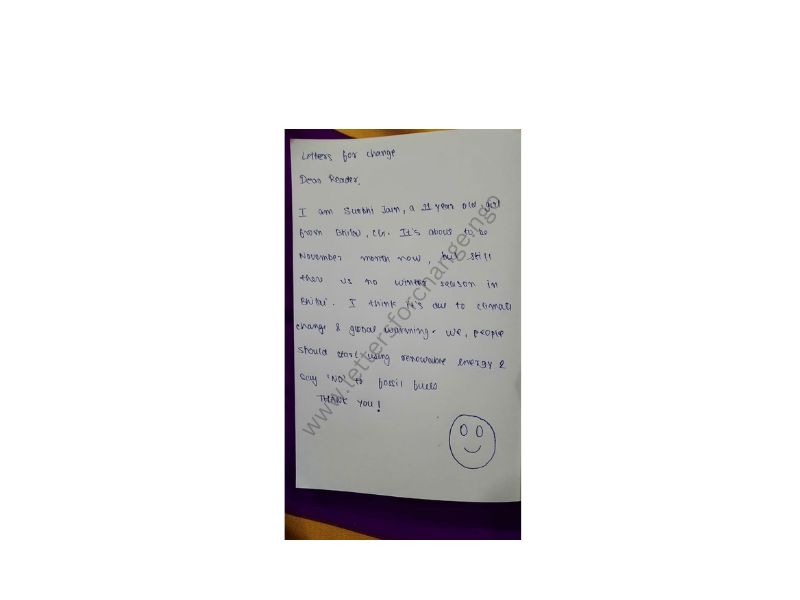 Letters for change
Dear Reader,
I am Surbhi Jain, a 11 year old girl
from Bhilai, CG. It's about to be
November month now, but still
there is no winter season in
Bhilai. I think it's due to climate
change & global warming. We, people
should start using renewable energy &
say 'NO' to fossil fuels
THANK YOU!
www.lettersforchange.ngo